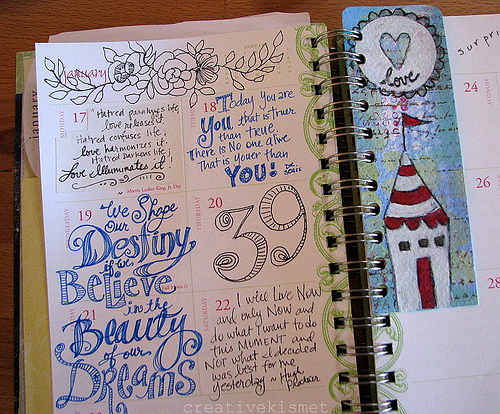 January
JANUARY
MONDAY
17
"Hatred paralyzes life,
love releases it.
Hatred confuses life;
love harmonizes it.
Hatred Darkens life;
Love Illuminates it."
~ Martin Luther King, Jr. Day
18
Today you are
You, that is truer
than true.
There is No one alive
That is youer than
YOU!
19
We Shape
our
Destiny
if we
Believe
in the
Beauty
of our
Dreams
THURSDAY
20
39
21
SATURDAY
22
I will Live Now
and only Now and
do what I want to do
this MOMENT and
Not what I decided
was best for me
yesterday ~ Hugh
Prather
love
surpri
MONDAY
24
26
28
creativekismet